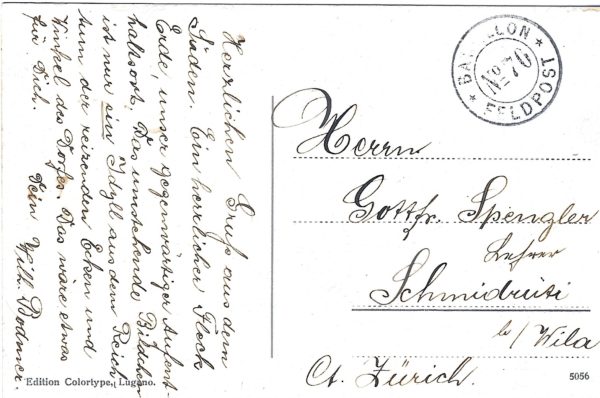 Herzlichen Gruß aus dem
Süden. Ein herrlicher Fleck
Erde, unser gegenwärtiger Aufent-
haltsort. Das umstehende Bildchen
ist nur ein Idyll aus dem Reich-
tum der reizenden Ecken und
Winkel des Dorfes. Das wäre etwas
für Dich. Dein Wilh. Bodmer.
BATAILLON
No 76
* FELDPOST *
Herrn
Gottfr. Spengler
Lehrer
Schmidrüti
b/ Wila
Ct. Zürich.
Edition Colortype, Lugano.
5056